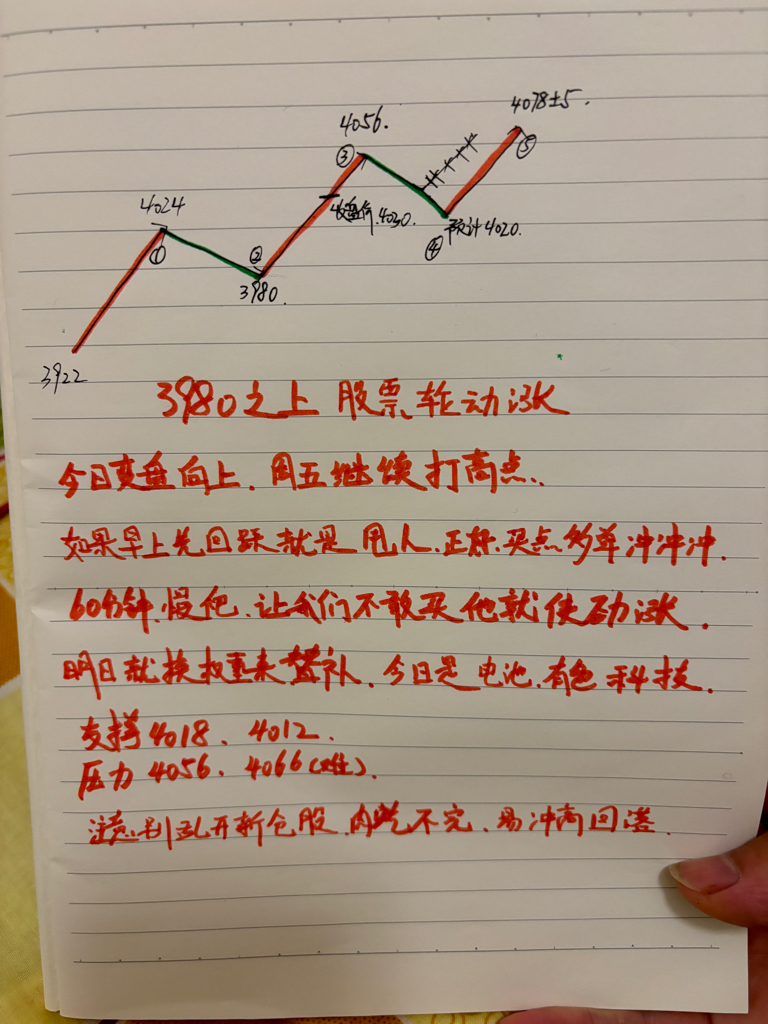 4078±5.
4056.
③
⑤
4024
收盘价.4030.
①
②
④
预计4020.
3980.
3922
3980之上 股票轮动涨
今日变盘向上.周五继续打高点.
如果早上先回踩就是甩人.正好.买点 多单冲冲冲.
60分钟.慢爬.让我们不敢买他就使劲涨.
明日就换权重来替补.今日是电池.有色 科技.
支撑4018、4012.
压力4056、4066(难).
注意.别乱开新仓股.肉吃不完、易冲高回落.